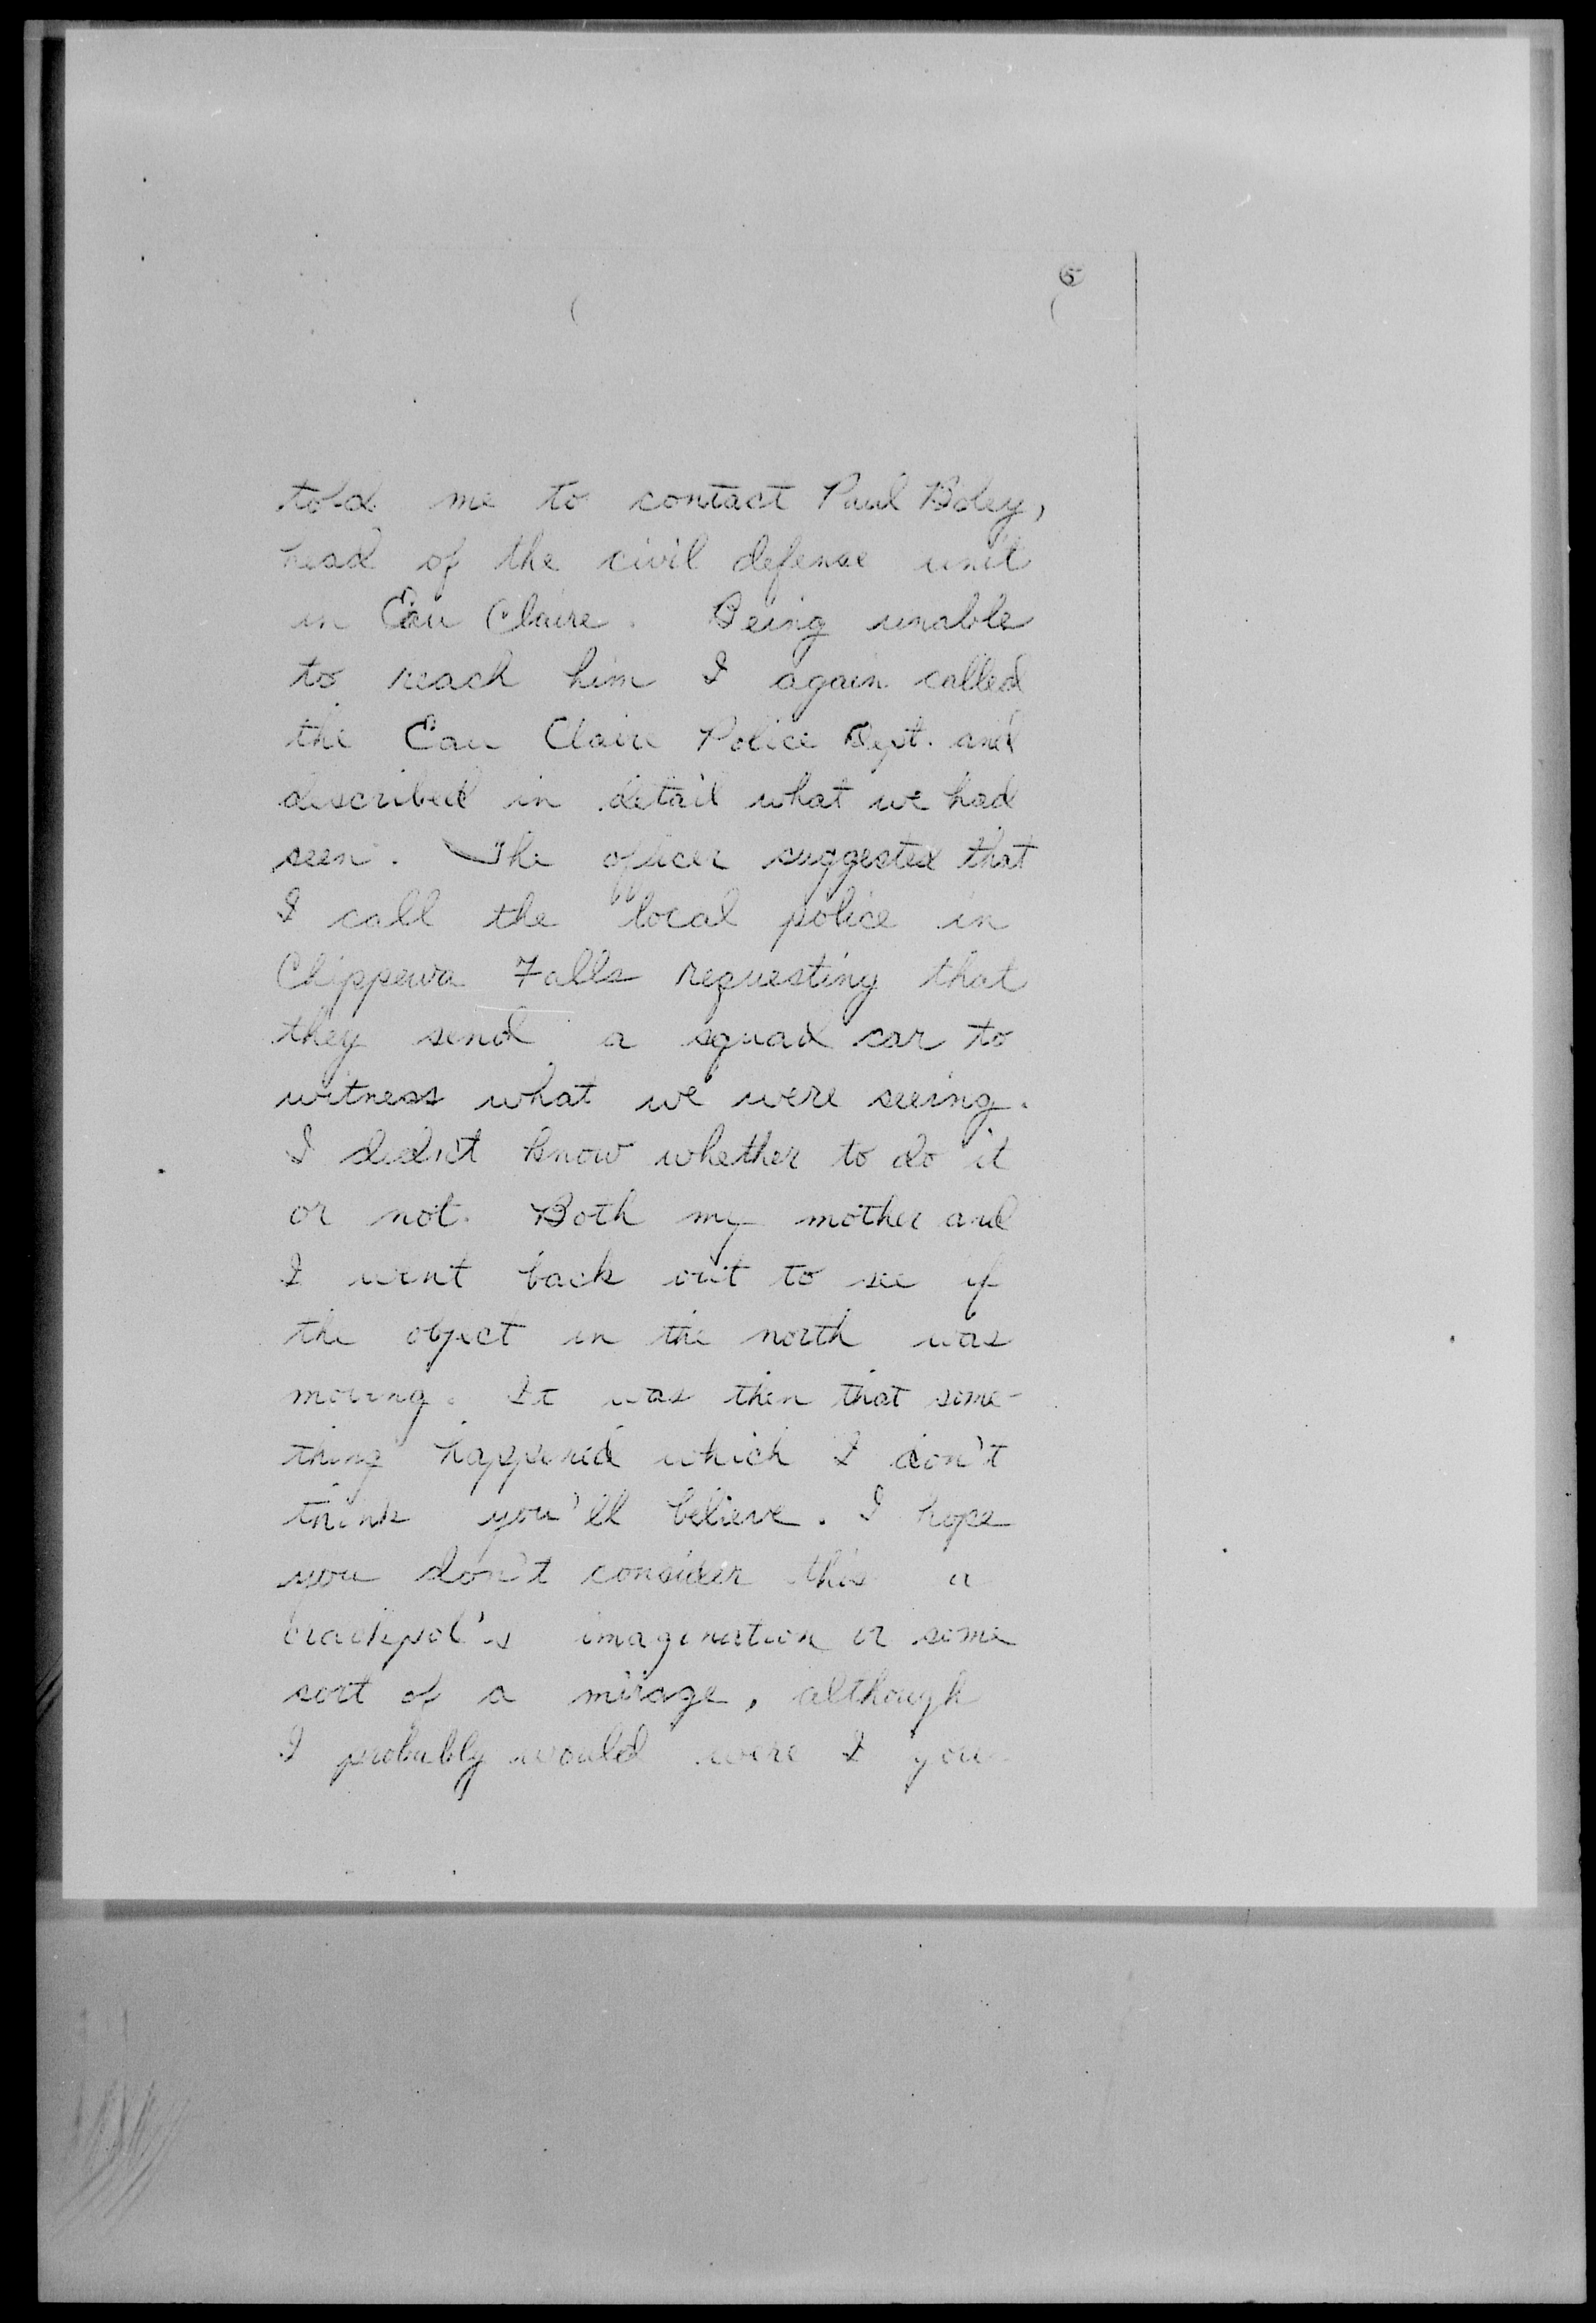 5
told me to contact Paul Boley,
head of the civil defense unit
in Eau Claire. Being unable
to reach him I again called
the Eau Claire Police Dept. and
described in detail what we had
seen. The officer suggested that
I call the local police in
Chippewa Falls requesting that
they send a squad car to
witness what we were seeing.
I didn't know whether to do it
or not. Both my mother and
I went back out to see if
the object in the north was
moving. It was then that some-
thing happened which I don't
think you'll believe. I hope
you don't consider this a
crackpot's imagination or some
sort of a mirage, although
I probably would were I you